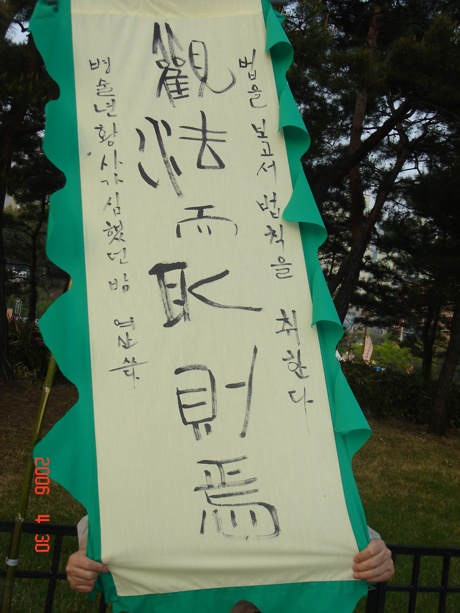 법을 보고서 법칙을 취한다
觀法而取則焉
병술년 황사가 심했던 밤
2006 4 30